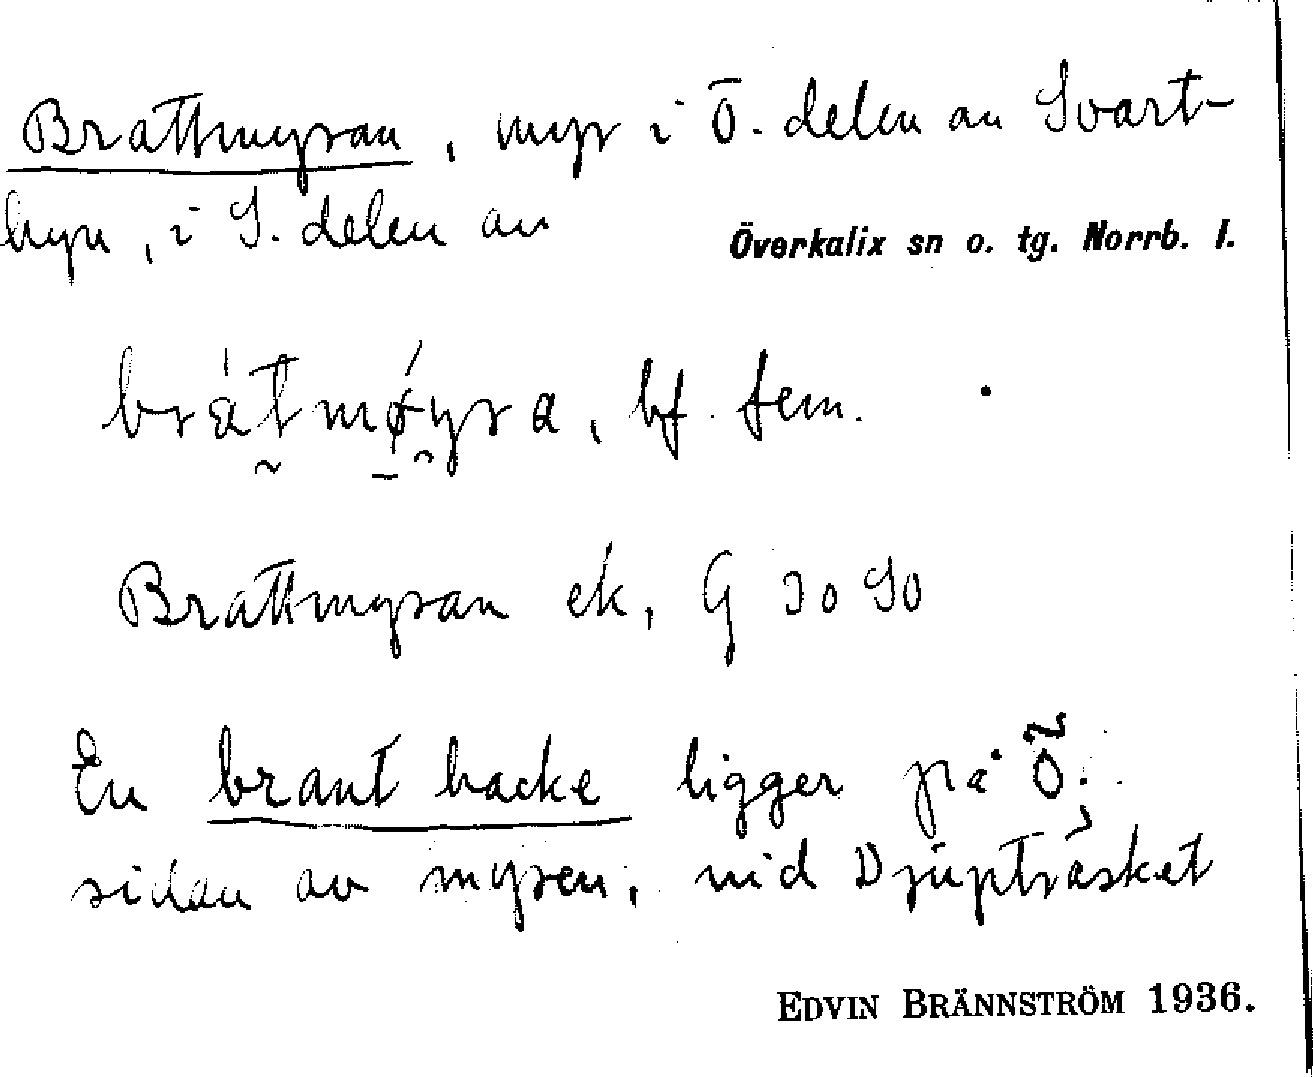 Brattmyran, myr i Ö. delen av Svart-
byn, i S. delen av Överkalix sn o. tg. Norrb. l.
brátmǿyra, bf. fem.
Brattmyran ek, G 30 S0
En brant backe ligger på Ö.
sidan av myren, vid Djupträsket
EDVIN BRÄNNSTRÖM 1936.